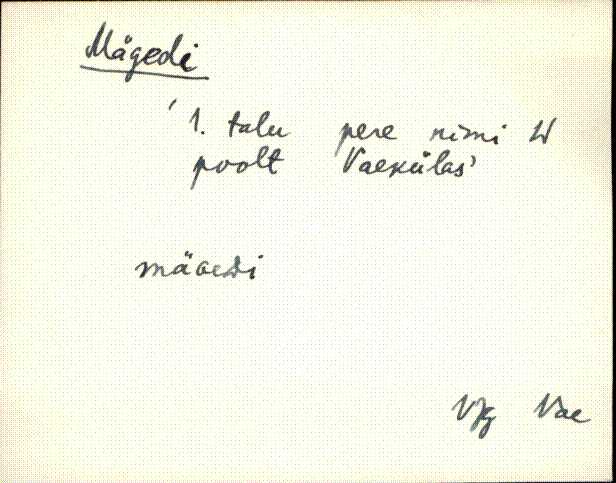 Mägedi
' 1. talu pere nimi W
poolt Vaekülas'
mäGEDi
Vjg Vae